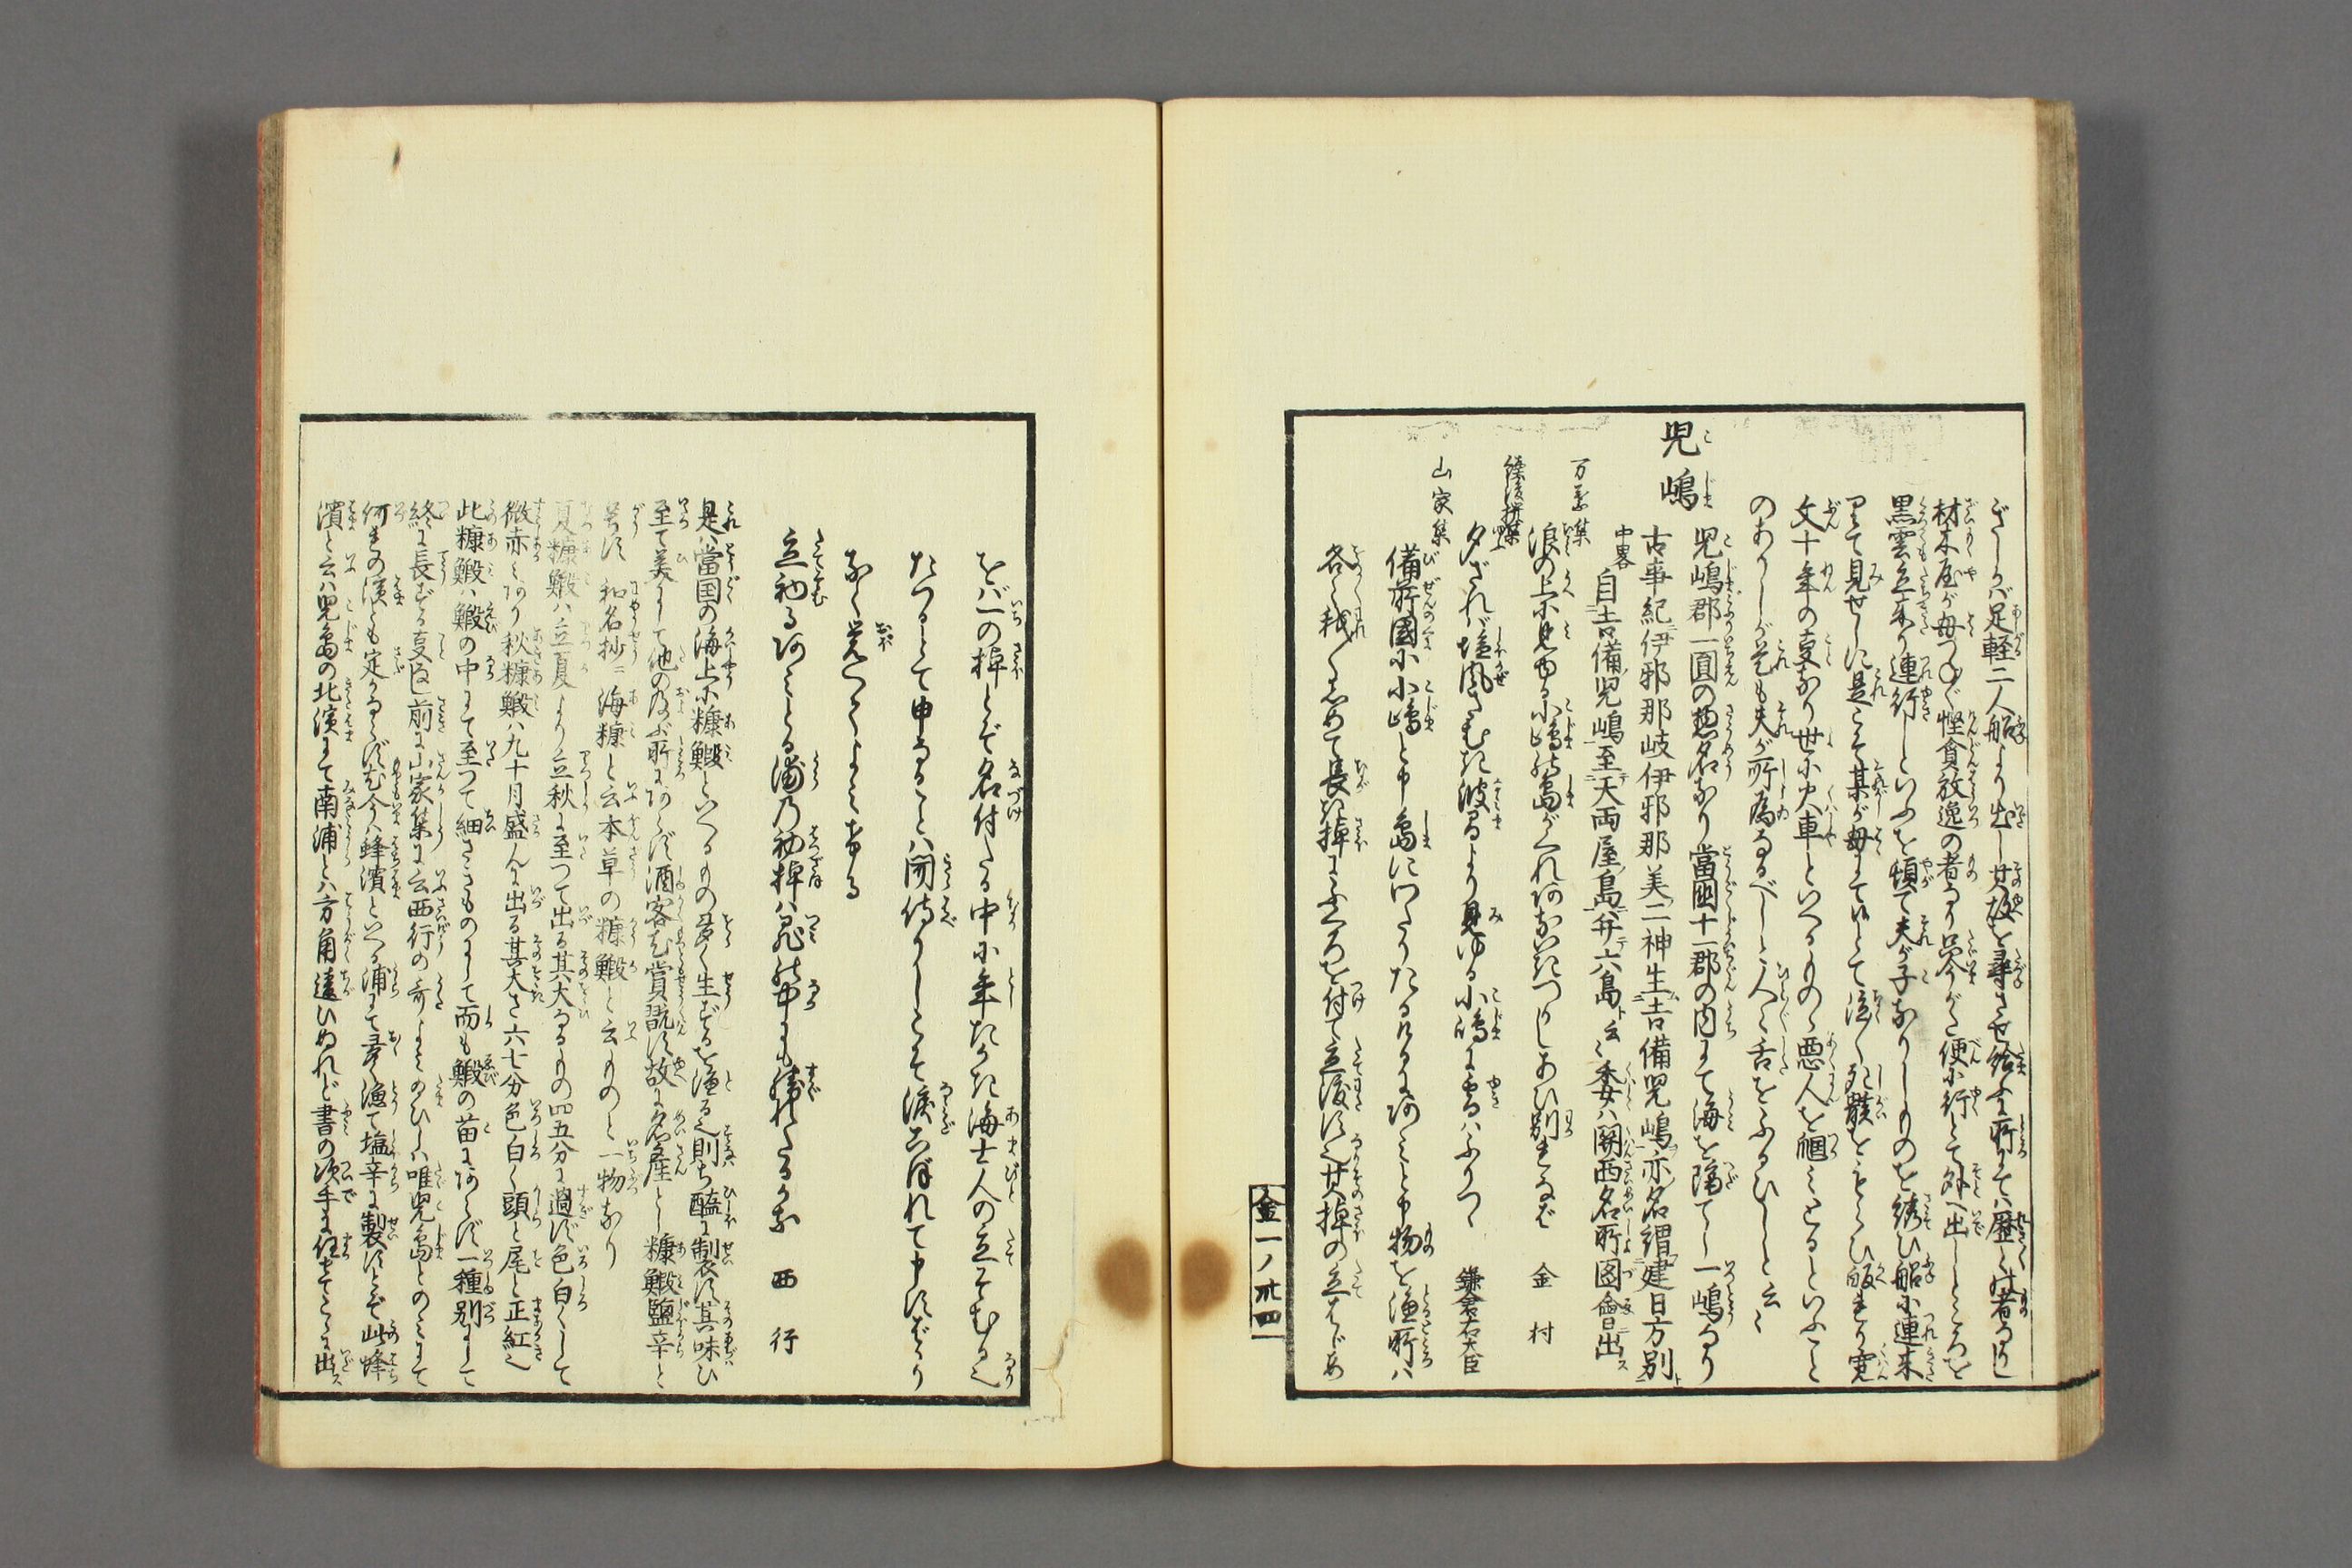 ざしかば足軽二人船より出し其故を尋させ給ふ所にては歴々の者なりし
材木屋が母つねに慳貪放逸の者なり只今がた便に行とて外へ出しところを
黒雲立来り連行しといふを頓て夫が子ありしものを誘ひ船に連来
りて見せしに是こそ某が母にて候とて泣く死骸をもらひ皈きり寛
文十年の夏なり世に火車といへるもの悪人を𢌞みとるといふこと
のありしが是も夫が所為なるべしと人々舌をふるひしと云々
児嶋
児嶋郡一圓の惣名なり當國十一郡の内にて海を隔てし一嶋なり
古事紀伊邪那岐伊邪那美二神生吉備児嶋亦名謂建日方別
中畧自吉備児嶋至天両屋島并六島ト云々委ハ関西名所図會出ス
万葉集
浪の上に見ゆる小嶋の島がくれあないきつかしあひ別れなば　金村
続後拾遺集
夕ざれば塩風さむき波間より見ゆる小嶋に雪ハふりつゝ　鎌倉右大臣
山家集
備前國に小嶋と申島にわたりたりけるにあみと申物を漁所ハ
各々我々しめて長き棹にふくろを付て立渡す也其棹の立はじめ
金一ノ卅四
をバ一の棹とぞ名付たる中に年たかき海士人の立そむる也
たつるとて申なることハ聞侍りしこそ涙こぼれて申すばかり
なく覚えてよみける
立初るあみとる浦の初棹ハ罪の中にも勝れたるかな　西行
是ハ當国の海上に糠鰕といへるもの多く生ずるを漁る也則ち醢に製す其味ひ
至て美にして他の及ぶ所にあらず酒客尤賞翫す故に名産とし糠鰕鹽辛と
号す　和名抄ニ海糠と云本草の糠鰕と云ものと一物なり
夏糠鰕ハ立夏より立秋に至つて出る其大なるもの四五分に過ず色白くして
微赤みあり秋糠鰕ハ九十月盛んに出る其大さ六七分色白く頭と尾と正紅也
此糠鰕ハ鰕の中にて至つて細さきものにして而も鰕の苗にあらず一種別にして
終に長ずる事なし前に山家集に云西行の哥よみ給ひしハ唯児島とのみにて
何れの濱とも定かならず尤今ハ蜂濱といへる浦にて多く漁て塩辛に製すとぞ此蜂
濱と云ハ児島の北濱にて南浦とハ方角違ひぬれど書の次手に任せてこゝに出ス